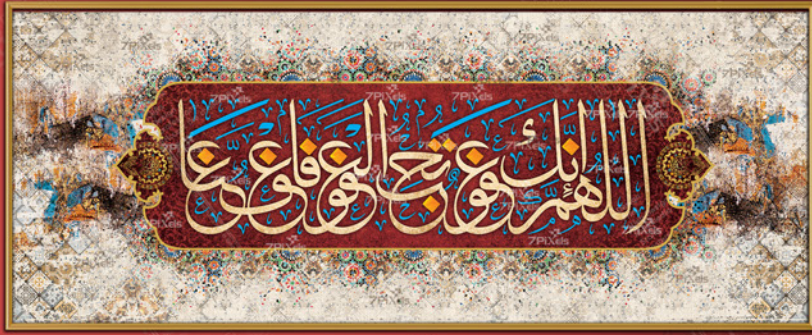 اللهم إنك عفو تحب العفو فاعف عنا
7PIXels